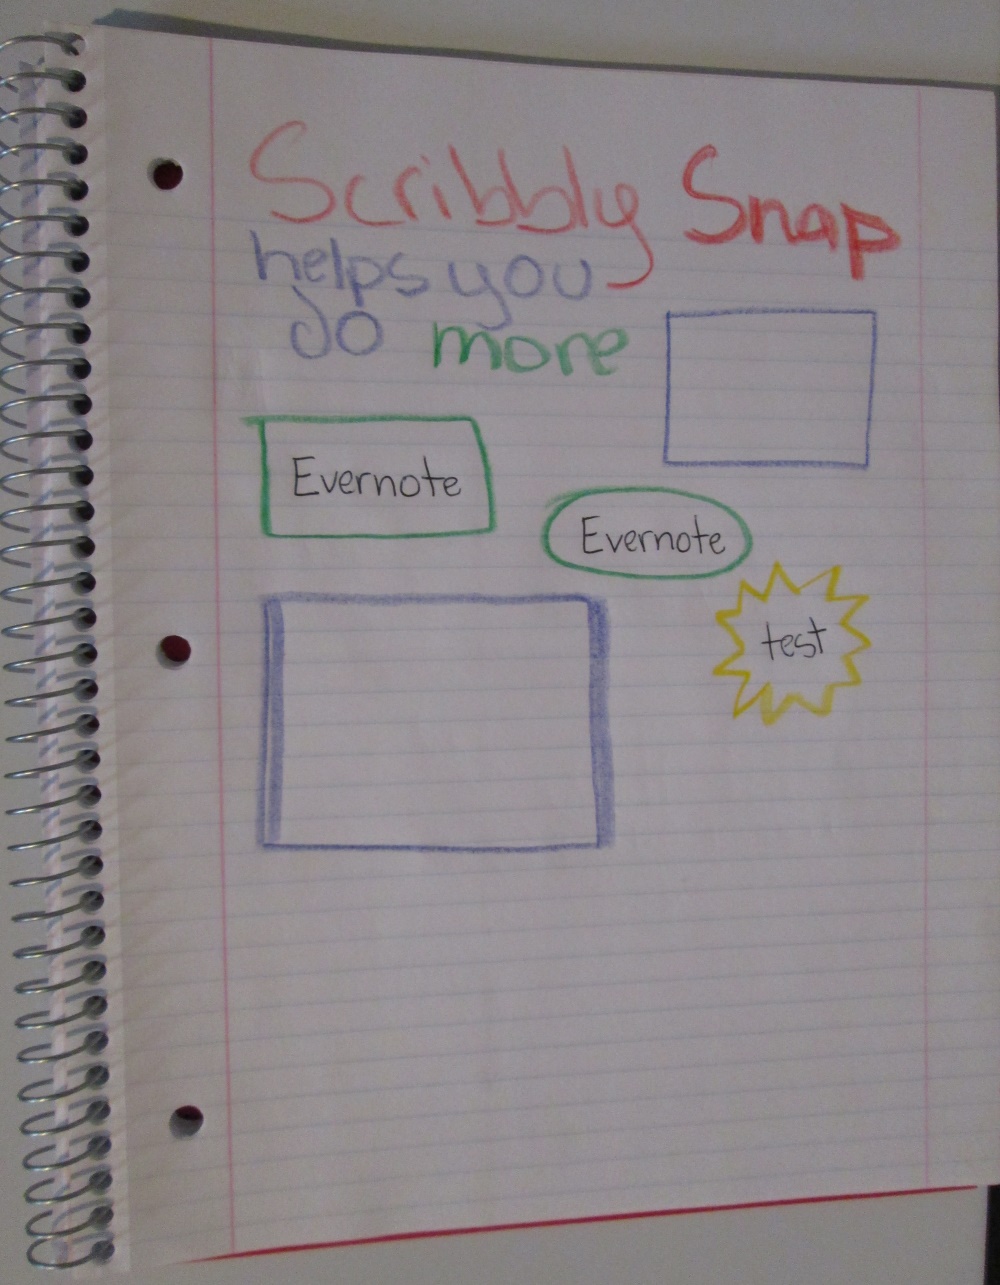 Scribbly Snap
helps you
do more
Evernote
Evernote
test